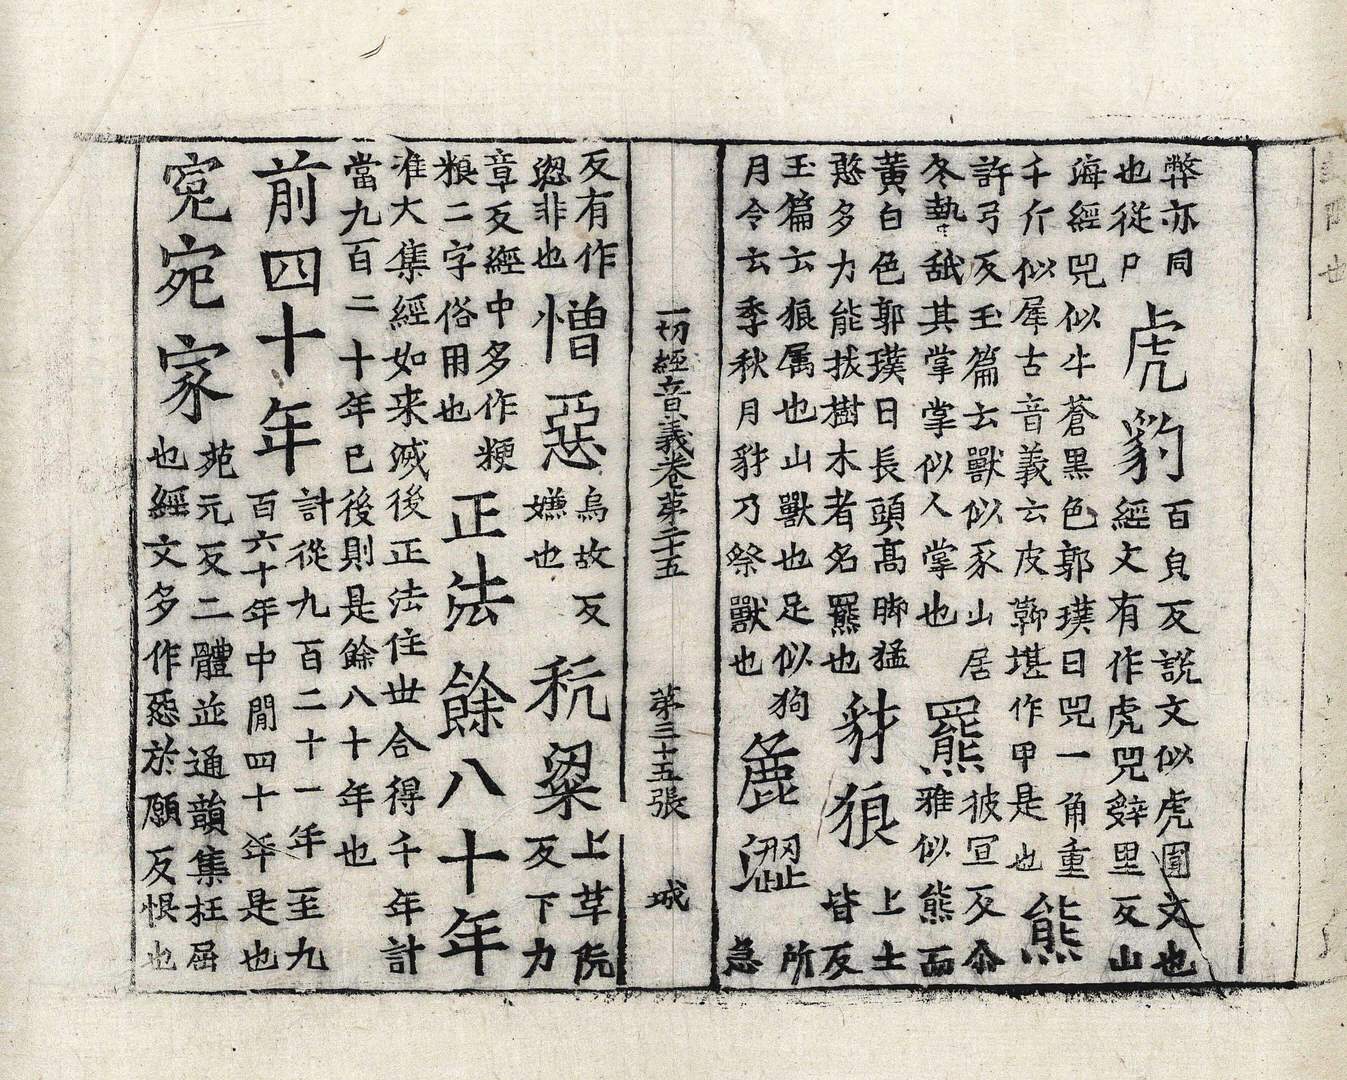 弊亦同
也從户
虎豹
百皃反說文似虎圓文也
經文有作虎兕辝里反山
海經兕似牛蒼黑色郭璞曰兕一角重
千斤似犀古音義云皮鞹堪作甲是也
熊
許弓反玉篇云獸似豕山居
冬熱舐其掌掌似人掌也
羆
彼宣反尒
雅似熊而
黃白色郭璞曰長頭高脚猛
憨多力能拔樹木者名羆也
豺狼
上士
皆反
玉篇云狼属也山獸也足似狗
月令云季秋月豺乃祭獸也
麁澀
所
急
一切經音義卷第二十五 第三十五張 城
反有作
非也
憎惡
烏故反
嫌也
秔粱
上草阮
反下力
章反經中多作粳
粮二字俗用也
正法餘八十年
准大集經如来滅後正法住世合得千年計
當九百二十年已後則是餘八十年也
前四十年
計從九百二十一年至九
百六十年中閒四十年是也
寃宛家
苑元反二體並通韻集枉屈
也經文多作怨於願反恨也